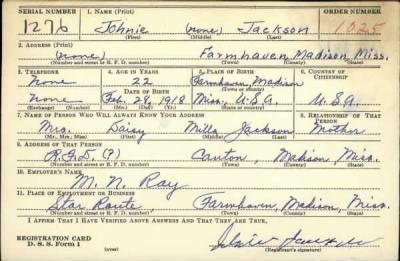 SERIAL NUMBER 1. NAME (Print) ORDER NUMBER
1276 Johnie (none) Jackson 1025
(First) (Middle) (Last)
2. ADDRESS (Print)
(none) Farmhaven, Madison, Miss.
(Number and street or R. F. D. number) (Town) (County) (State)
3. TELEPHONE 4. AGE IN YEARS 5. PLACE OF BIRTH 6. COUNTRY OF CITIZENSHIP
None 22 Farmhaven, Madison
DATE OF BIRTH (Town or county)
None Feb. 28, 1918 Miss. U.S.A. U.S.A.
(Exchange) (Number) (Mo.) (Day) (Yr.) (State or country)
7. NAME OF PERSON WHO WILL ALWAYS KNOW YOUR ADDRESS 8. RELATIONSHIP OF THAT PERSON
Mrs. Daisy Mills Jackson Mother
(Mr., Mrs., Miss) (First) (Middle) (Last)
9. ADDRESS OF THAT PERSON
R.F.D. (?) Canton, Madison, Miss.
(Number and street or R. F. D. number) (Town) (County) (State)
10. EMPLOYER'S NAME
M. N. Ray
11. PLACE OF EMPLOYMENT OR BUSINESS
Star Route Farmhaven, Madison, Miss.
(Number and street or R. F. D. number) (Town) (County) (State)
I AFFIRM THAT I HAVE VERIFIED ABOVE ANSWERS AND THAT THEY ARE TRUE.
REGISTRATION CARD
D. S. S. Form 1 (over) (Registrant's signature)